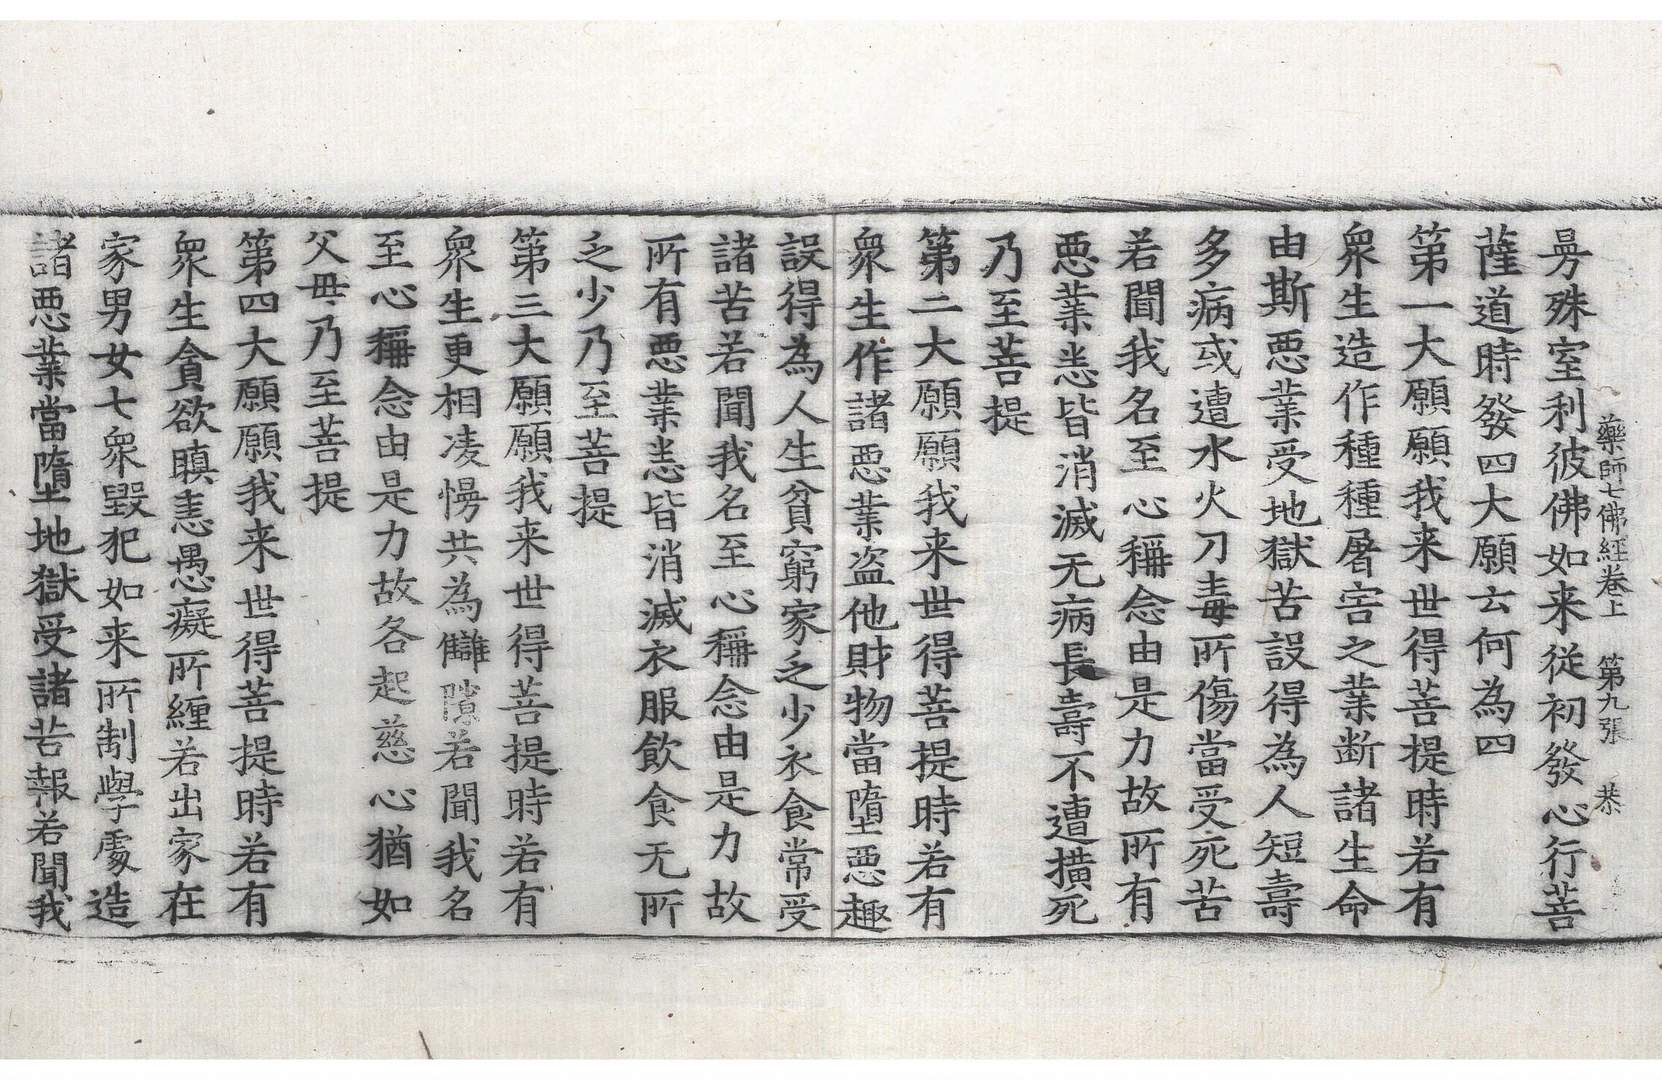 藥師七佛經卷上　第九張　恭
曼殊室利彼佛如来従初發心行菩
薩道時發四大願云何為四
第一大願願我来世得菩提時若有
衆生造作種種屠害之業断諸生命
由斯惡業受地獄苦設得為人短壽
多病或遭水火刀毒所傷當受死苦
若聞我名至心稱念由是力故所有
惡業悉皆消滅无病長壽不遭撗死
乃至菩提
第二大願願我来世得菩提時若有
衆生作諸惡業盗他財物當墮惡趣
設得為人生貧窮家乏少衣食常受
諸苦若聞我名至心稱念由是力故
所有惡業悉皆消滅衣服飲食无所
乏少乃至菩提
第三大願願我来世得菩提時若有
衆生更相凌慢共為讎隙若聞我名
至心稱念由是力故各起慈心猶如
父毋乃至菩提
第四大願願我来世得菩提時若有
衆生貪欲瞋恚愚癡所纏若出家在
家男女七衆毀犯如来所制學處造
諸惡業當墮地獄受諸苦報若聞我